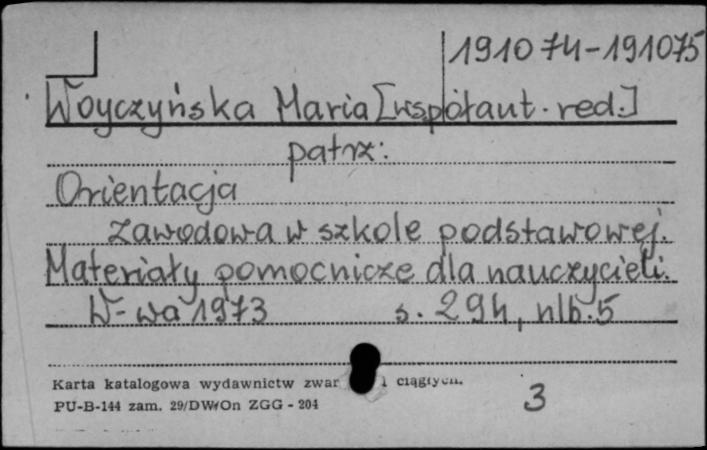 191074-191075
Woyczyńska Maria [współaut. red.]
patrz:
Orientacja
zawodowa w szkole podstawowej.
Materiały pomocnicze dla nauczycieli.
W-wa 1973 s. 294, nlb. 5
Karta katalogowa wydawnictw zwar i ciągłych.
PU-B-144 zam. 29/DWOn ZGG - 204
3